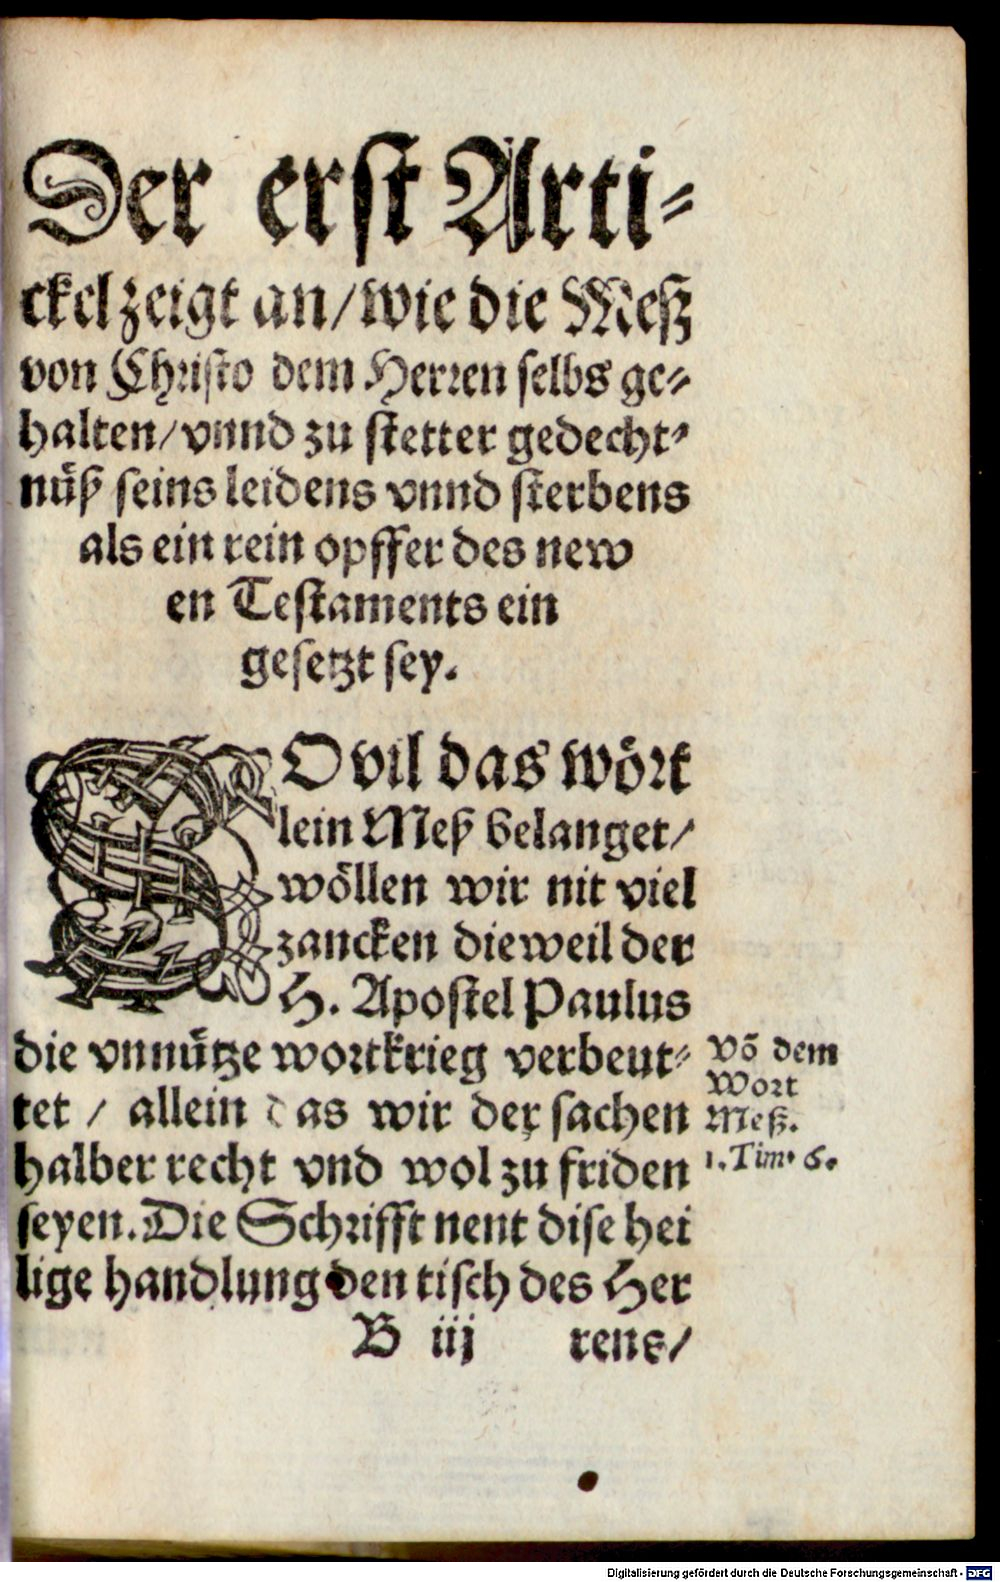 Der erst Arti-
ckel zeigt an/ wie die Meß
von Christo dem Herren selbs ge-
halten/ vnnd zu stetter gedecht-
nüß seins leidens vnnd sterbens
als ein rein opffer des new
en Testaments ein
gesetzt sey.
SO vil das wört
lein Meß belanget/
wöllen wir nit viel
zancken dieweil der
H. Apostel Paulus
die vnnütze wortkrieg verbeut-
tet / allein das wir der sachen
halber recht vnd wol zu friden
seyen. Die Schrifft nent dise hei
lige handlung den tisch des Her
B iij rens/
Võ dem
Wort
Meß.
1. Tim. 6.
Digitalisierung gefördert durch die Deutsche Forschungsgemeinschaft - DFG